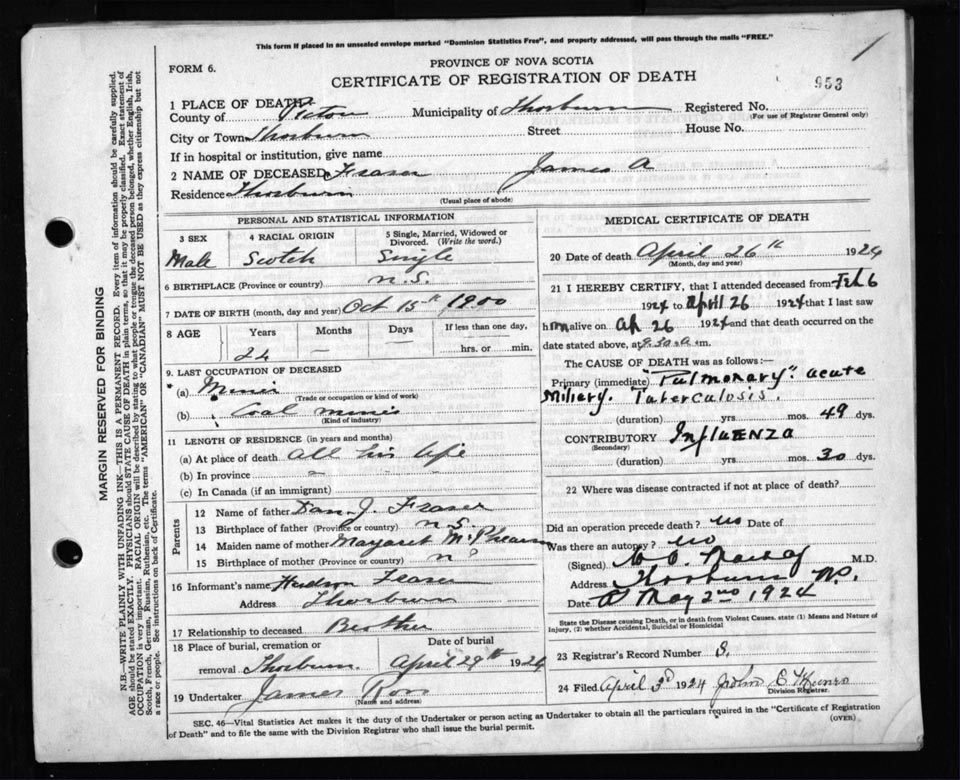 This form if placed in an unsealed envelope marked "Dominion Statistics Free", and properly addressed, will pass through the mails "FREE."
FORM 6.
PROVINCE OF NOVA SCOTIA
CERTIFICATE OF REGISTRATION OF DEATH
953
1 PLACE OF DEATH
County of Pictou Municipality of Thorburn Registered No.
(For use of Registrar General only)
City or Town Thorburn Street House No.
If in hospital or institution, give name
2 NAME OF DECEASED Fraser James A
Residence Thorburn
(Usual place of abode)
PERSONAL AND STATISTICAL INFORMATION
3 SEX 4 RACIAL ORIGIN 5 Single, Married, Widowed or Divorced. (Write the word.)
Male Scotch Single
6 BIRTHPLACE (Province or country) N.S.
7 DATE OF BIRTH (month, day and year) Oct 15th 1900
8 AGE Years Months Days If less than one day,
24 — — hrs. or min.
9. LAST OCCUPATION OF DECEASED
(a) Miner
(Trade or occupation or kind of work)
(b) Coal mines
(Kind of industry)
11 LENGTH OF RESIDENCE (in years and months)
(a) At place of death all his life
(b) In province –
(c) In Canada (if an immigrant)
Parents
12 Name of father Dan J. Fraser
13 Birthplace of father (Province or country) N.S.
14 Maiden name of mother Margaret
15 Birthplace of mother (Province or country)
16 Informant's name Hudson Fraser
Address Thorburn
17 Relationship to deceased Brother
18 Place of burial, cremation or Date of burial
removal Thorburn. April 29th 1924
19 Undertaker James Ross
(Name and address)
MEDICAL CERTIFICATE OF DEATH
20 Date of death April 26th 1924
(Month, day and year)
21 I HEREBY CERTIFY, that I attended deceased from Feb 6
1924 to April 26 1924 that I last saw
him alive on Ap 26 1924 and that death occurred on the
date stated above, at 8.30 a.m.
The CAUSE OF DEATH was as follows:
Primary (immediate) "Pulmonary" acute
Miliary. Tuberculosis.
(duration) yrs mos. 49 dys.
CONTRIBUTORY Influenza
(Secondary)
(duration) yrs mos. 30 dys.
22 Where was disease contracted if not at place of death?
Did an operation precede death? no Date of
Was there an autopsy? no
(Signed) M.D.
Address Thorburn N.S.
Date May 2nd 1924
State the Disease causing Death, or in death from Violent Causes. state (1) Means and Nature of Injury, (2) whether Accidental, Suicidal or Homicidal
23 Registrar's Record Number 8.
24 Filed April 3d 1924 John E Munro
Division Registrar.
SEC. 46—Vital Statistics Act makes it the duty of the Undertaker or person acting as Undertaker to obtain all the particulars required in the "Certificate of Registration
of Death" and to file the same with the Division Registrar who shall issue the burial permit. (OVER)
MARGIN RESERVED FOR BINDING
N.B.—WRITE PLAINLY WITH UNFADING INK—THIS IS A PERMANENT RECORD. Every item of information should be carefully supplied.
AGE should be stated EXACTLY. PHYSICIANS should STATE CAUSE OF DEATH in plain terms, so that it may be properly classified. Exact statement of
OCCUPATION is very important. RACIAL ORIGIN will be described by stating to what people or tongue the deceased person belonged, whether English, Irish,
Scotch, French, German, Russian, Ruthenian, etc. The terms "AMERICAN" OR "CANADIAN" MUST NOT BE USED as they express citizenship but not
a race or people. See instructions on back of Certificate.